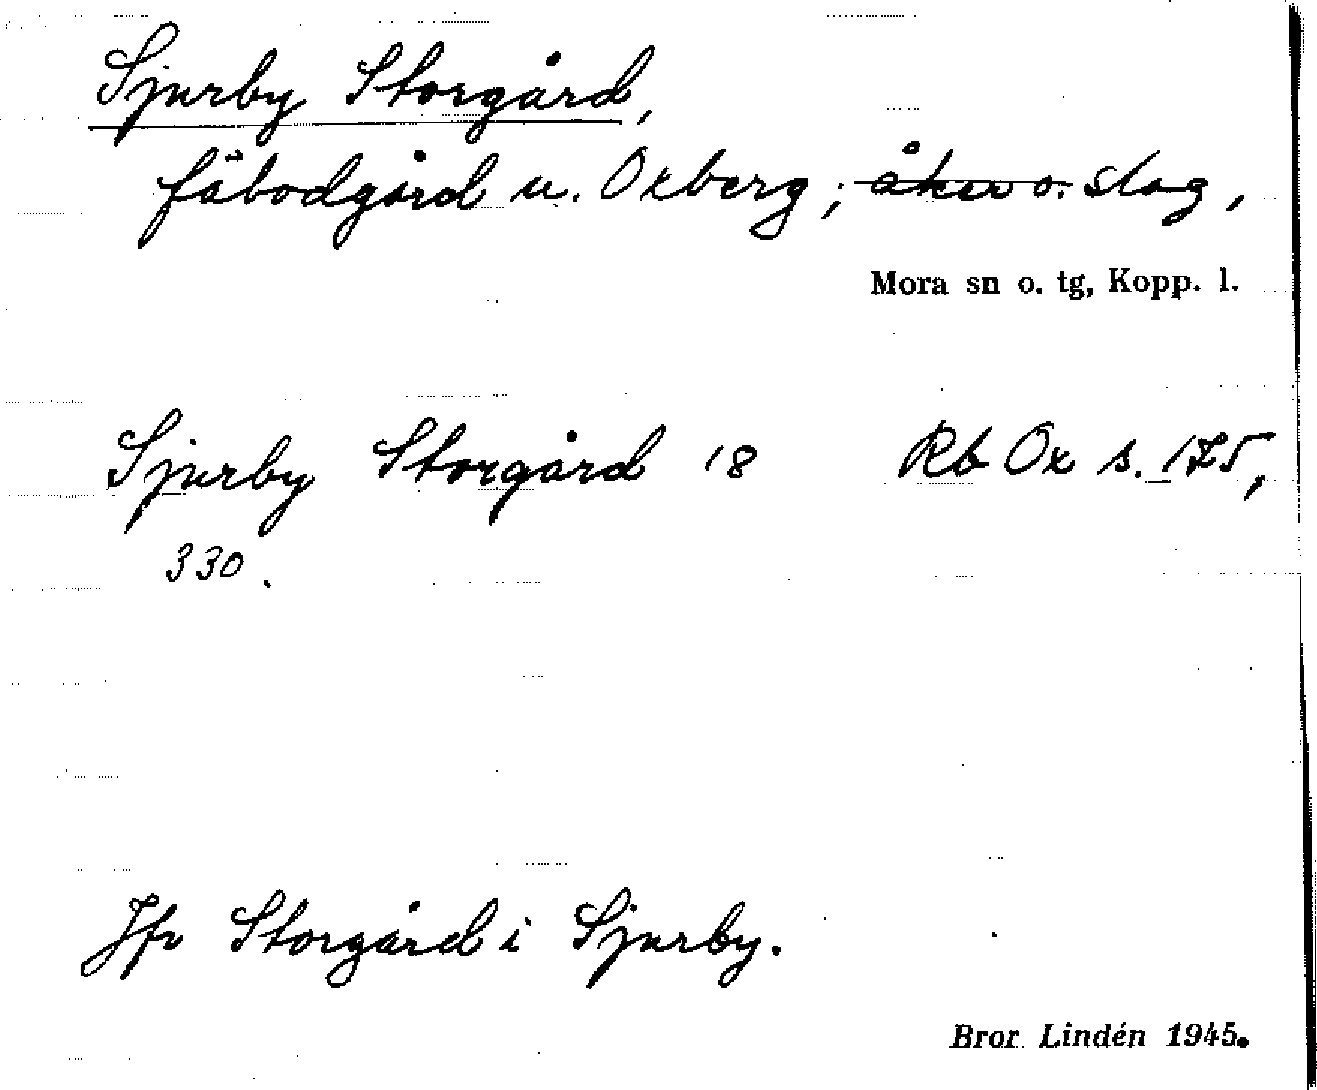 Sjurby Storgård,
fäbodgård u. Oxberg; åker o. slog,
Mora sn o. tg, Kopp. l.
Sjurby Storgård 18 Rb Ox s. 175,
330.
Jfr Storgård i Sjurby.
Bror Lindén 1945.